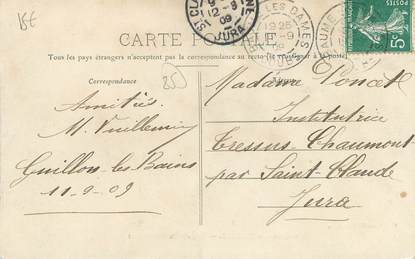 15€
CARTE POSTALE
Tous les pays étrangers n'acceptent pas la correspondance au recto
Correspondance
25
Amitiés
M. Vuillemin
Guillon les Bains
11-9-09
Madame Poncet
Institutrice
Cressus-Chaumont
par Saint-Claude
Jura
ST CLAUDE
12-9
09
JURA
LES DAMES
-9
09
BAUME
5c